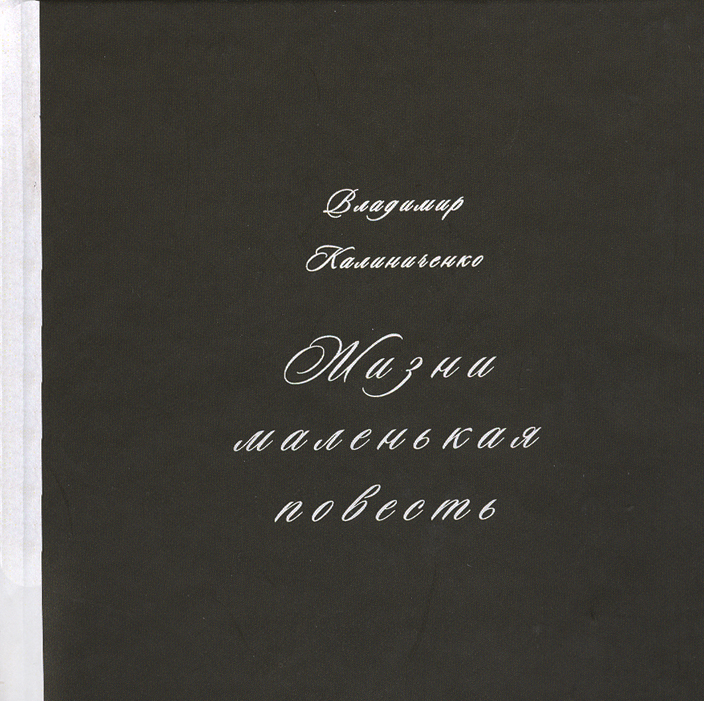 Владимир
Калиниченко
Жизни
маленькая
повесть